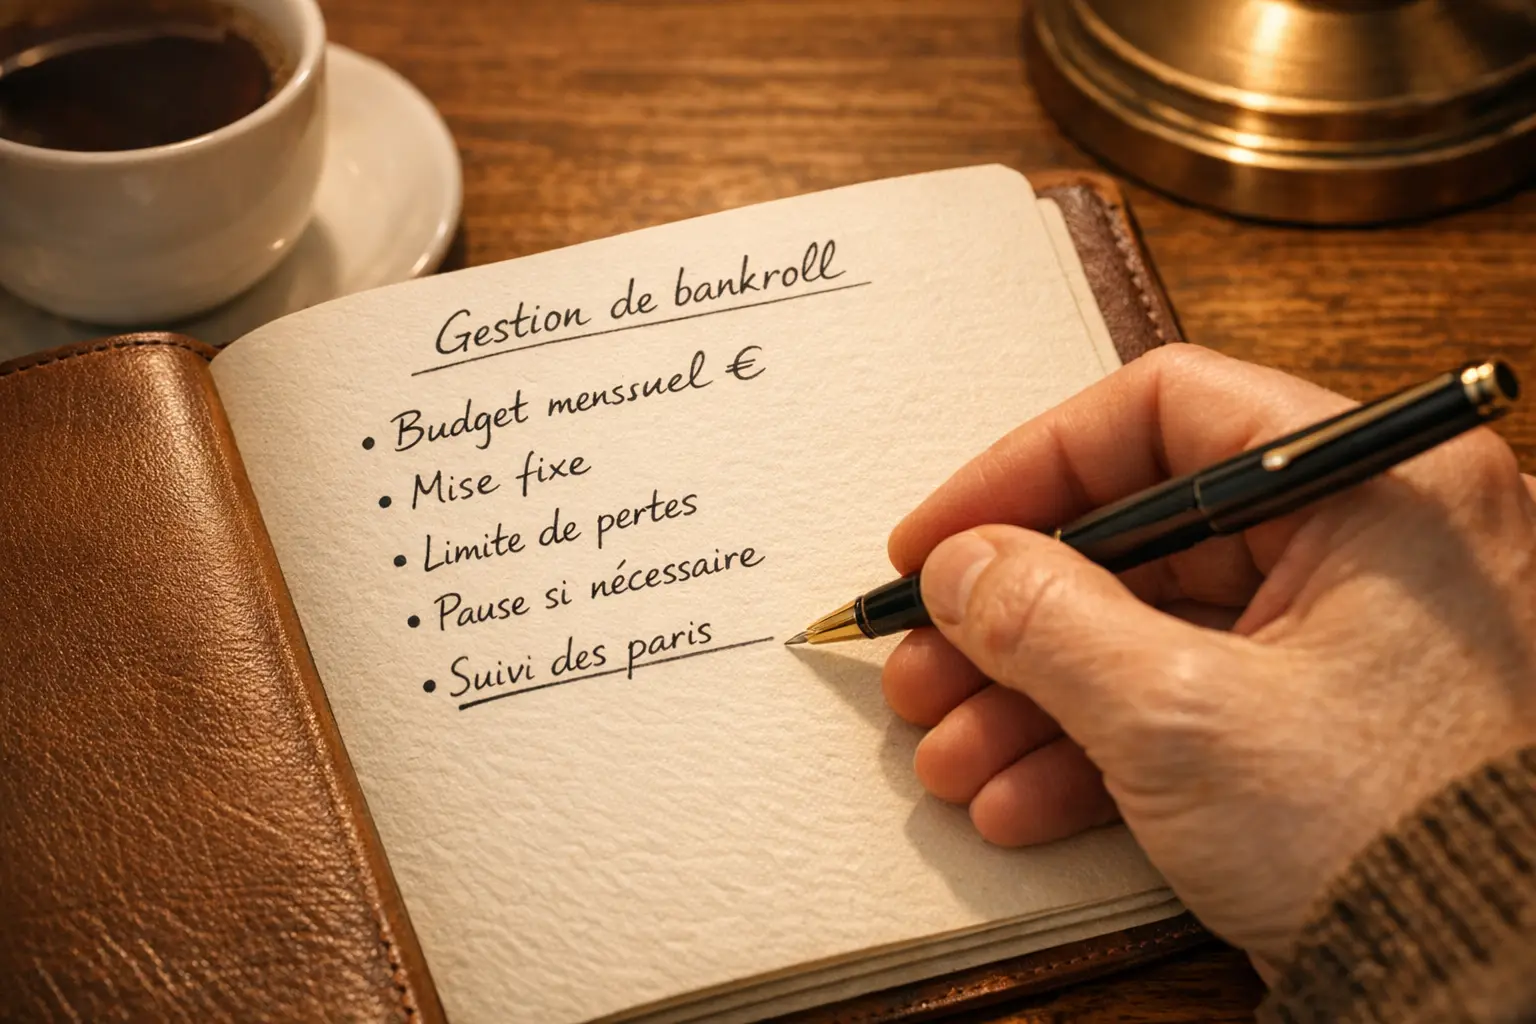 Gestion de bankroll
• Budget menssuel €
• Mise fixe
• Limite de pertes
• Pause si nécessaire
• Suivi des paris